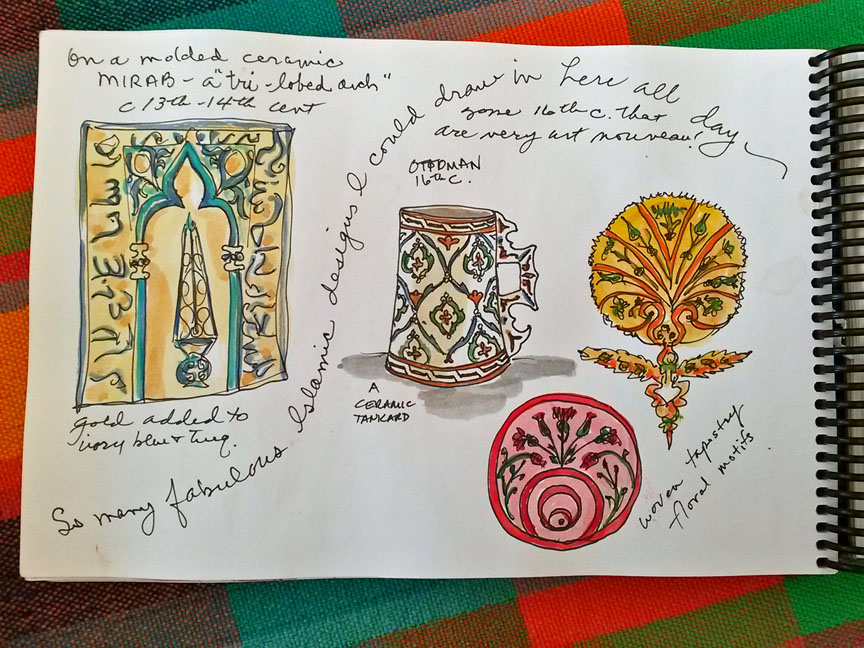 On a molded ceramic
MIRAB - a "tri-lobed arch"
c 13th-14th cent
gold added to
ivory blue & turq.
So many fabulous Islamic designs I could draw in here all day
some 16th c. that
are very art nouveau!
OTTOMAN
16th C.
A
CERAMIC
TANKARD
woven tapestry
floral motifs